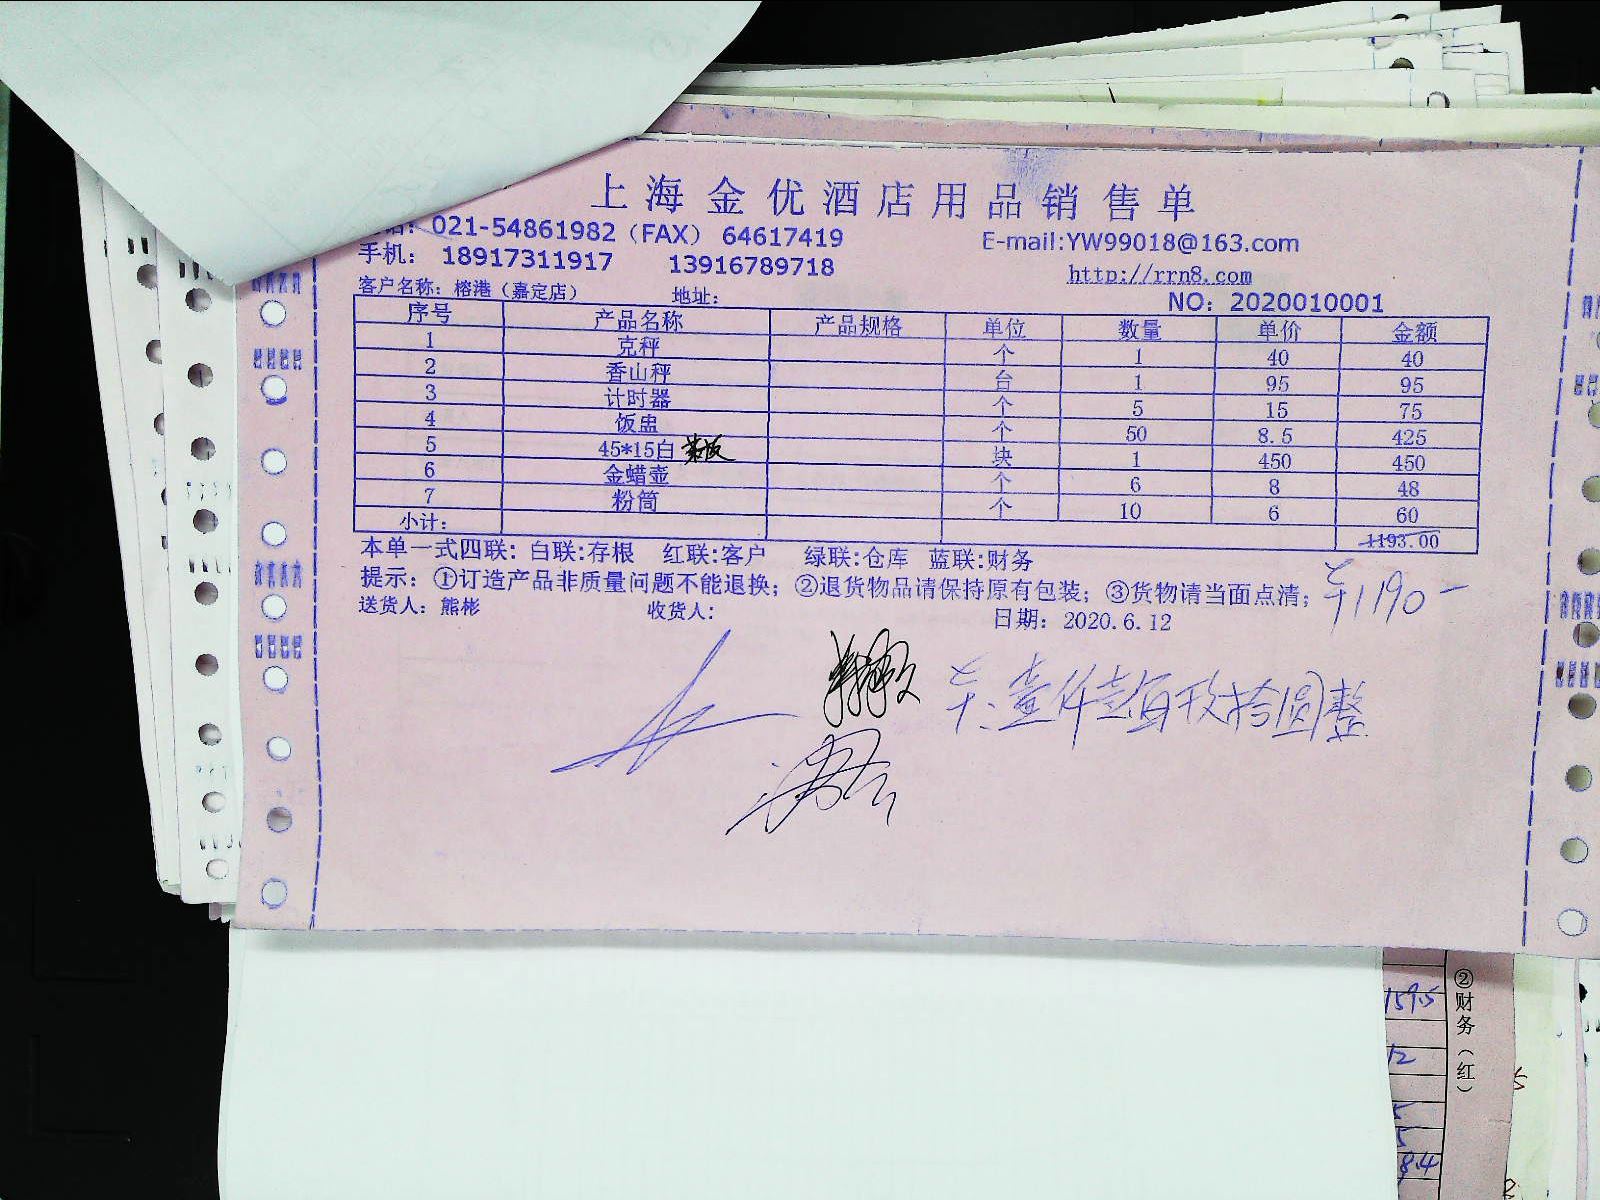 上海金优酒店用品销售单
话：021-54861982（FAX） 64617419 E-mail:YW99018@163.com
手机： 18917311917 13916789718 http://rrn8.com
客户名称：榕港（嘉定店） 地址： NO：2020010001
序号 产品名称 产品规格 单位 数量 单价 金额
1 克秤 个 1 40 40
2 香山秤 台 1 95 95
3 计时器 个 5 15 75
4 饭盅 个 50 8.5 425
5 45*15白菜板 块 1 450 450
6 金蜡壶 个 6 8 48
7 粉筒 个 10 6 60
小计： 1193.00
本单一式四联：白联:存根 红联:客户 绿联:仓库 蓝联:财务
提示：①订造产品非质量问题不能退换；②退货物品请保持原有包装；③货物请当面点清；
¥1190-
送货人：熊彬 收货人： 日期：2020.6.12
¥:壹仟壹佰玖拾圆整
②财务（红）
159.5
12
8.4